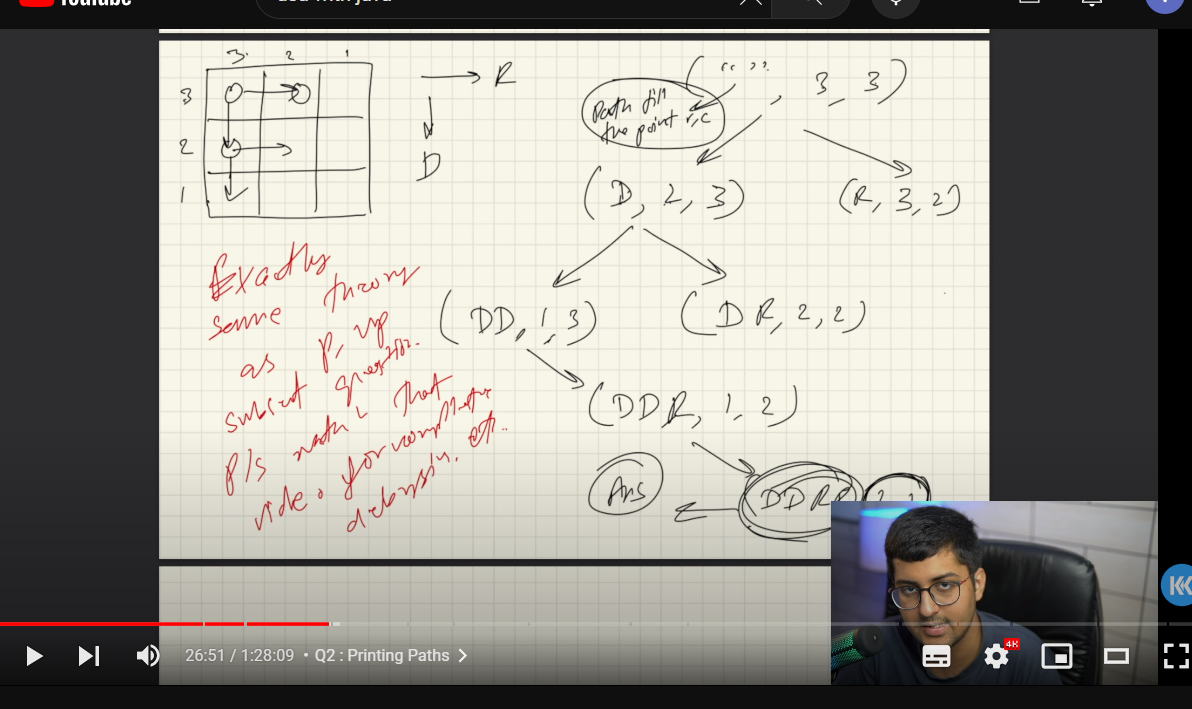 YouTube
3 2 1
3
2
1
R
D
Path till
the point r,c
(" ", 3, 3)
(D, 2, 3)
(R, 3, 2)
(DD, 1, 3)
(DR, 2, 2)
(DDR, 1, 2)
DDRR
Ans
Exactly
same theory
as P, up
subset question.
P/s watch that
video for complete
26:51 / 1:28:09 • Q2 : Printing Paths
4K